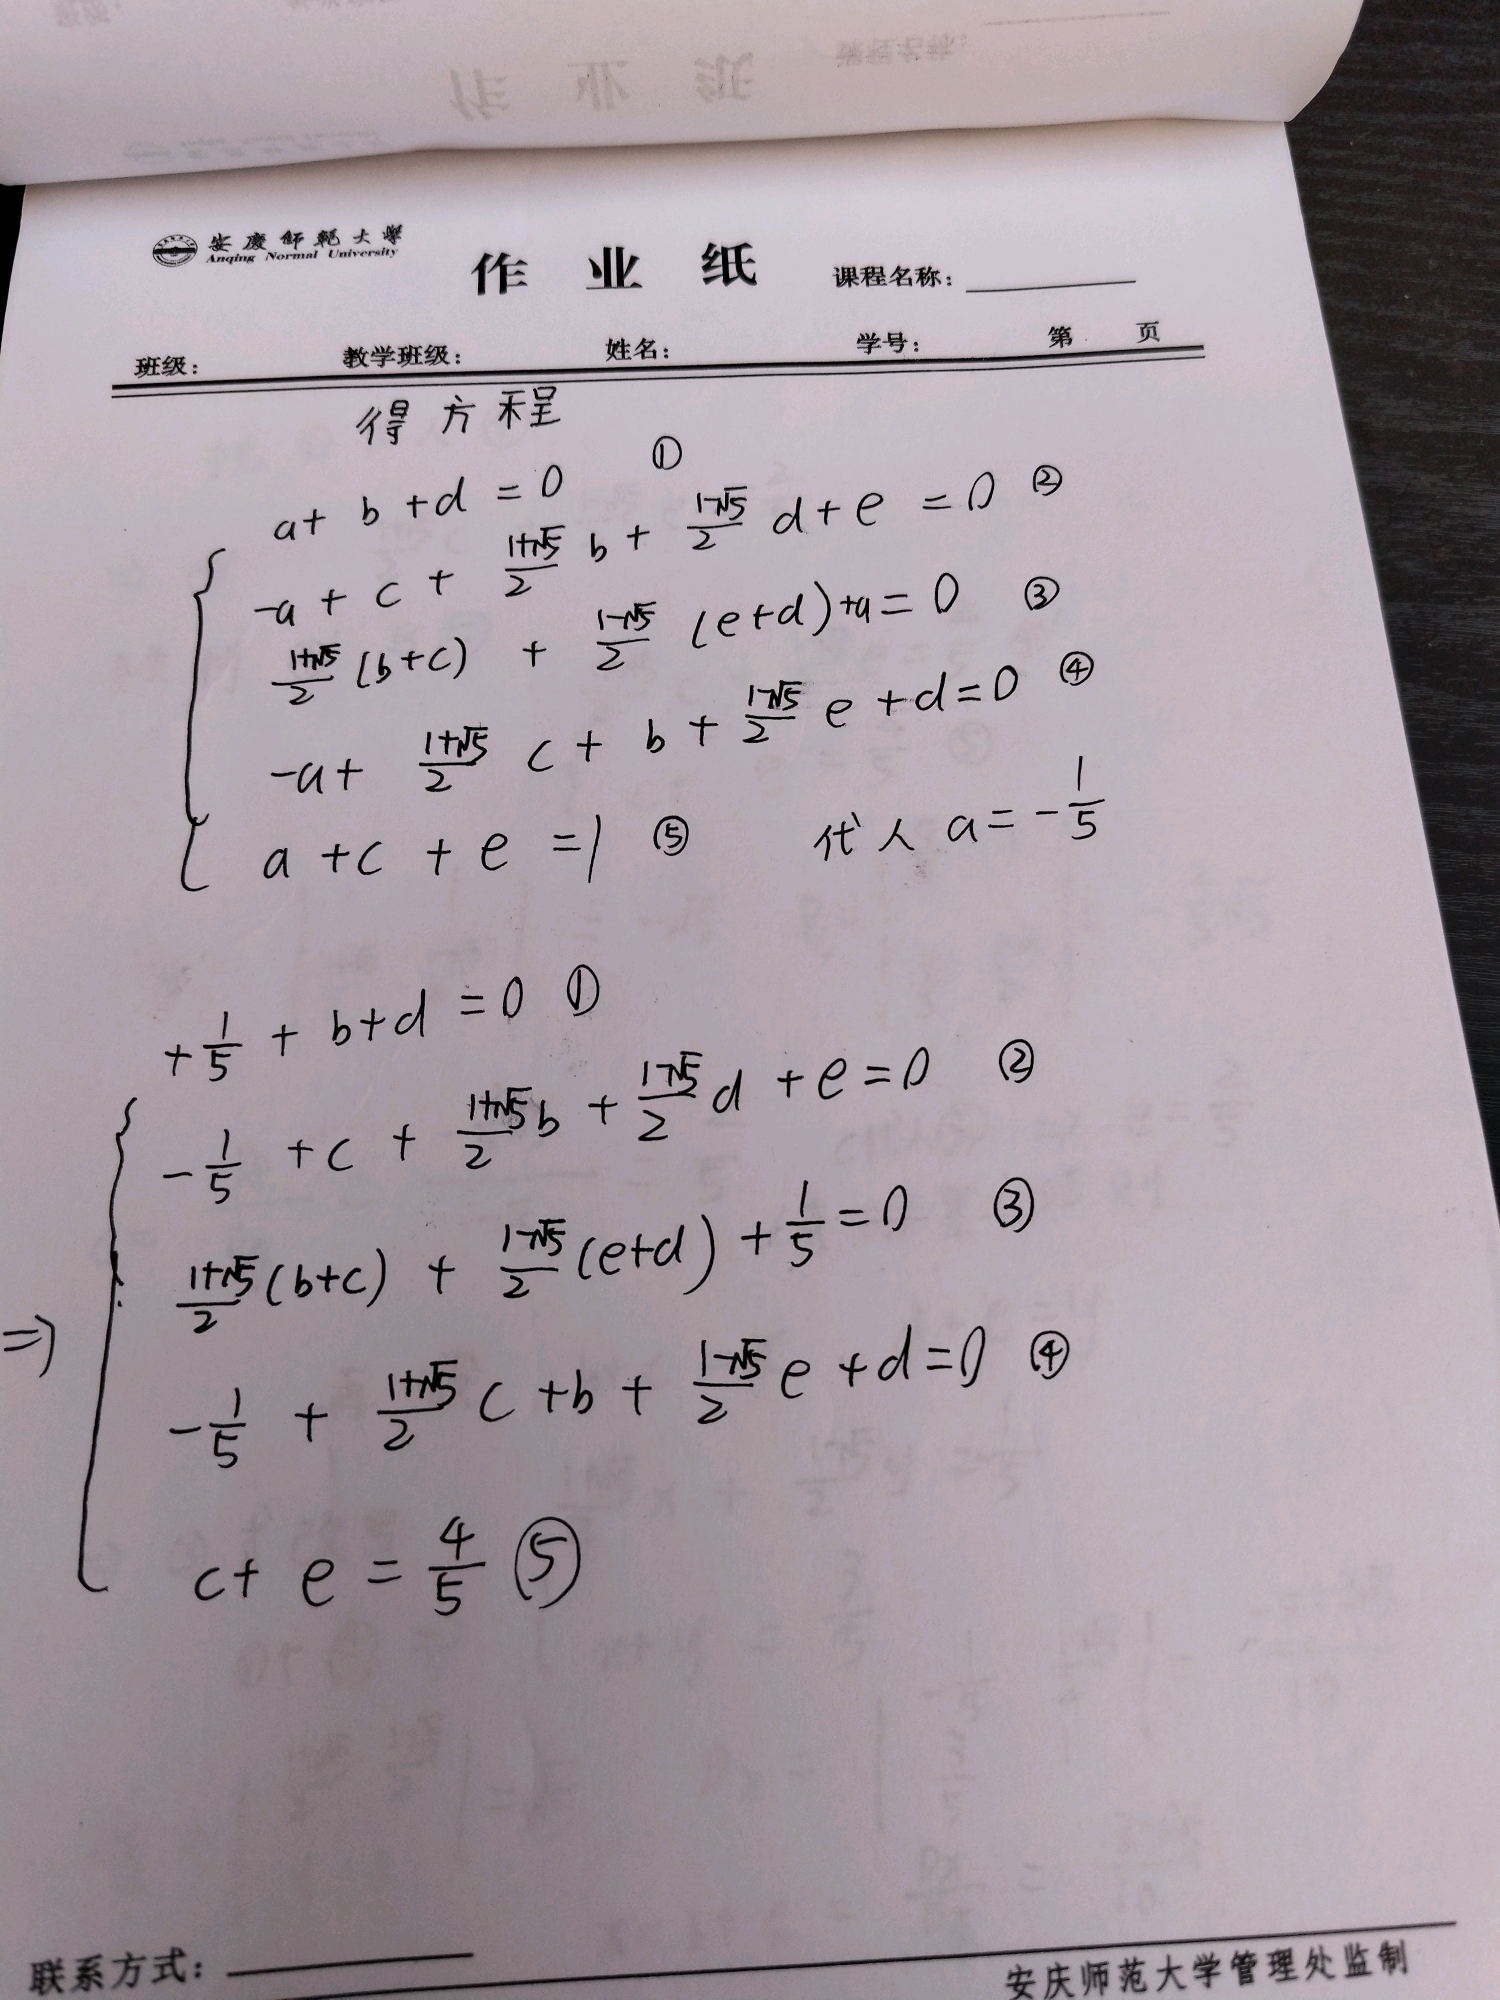 安慶師範大學
Anqing Normal University
作 业 纸
课程名称：
班级：
教学班级：
姓名：
学号：
第 页
得方程
a + b + d = 0 ①
-a + c + \frac{1+\sqrt{5}}{2} b + \frac{1-\sqrt{5}}{2} d + e = 0 ②
\frac{1+\sqrt{5}}{2} (b+c) + \frac{1-\sqrt{5}}{2} (e+d) + a = 0 ③
-a + \frac{1+\sqrt{5}}{2} c + b + \frac{1-\sqrt{5}}{2} e + d = 0 ④
a + c + e = 1 ⑤ 代人 a = -\frac{1}{5}
+\frac{1}{5} + b + d = 0 ①
-\frac{1}{5} + c + \frac{1+\sqrt{5}}{2} b + \frac{1-\sqrt{5}}{2} d + e = 0 ②
⇒ \frac{1+\sqrt{5}}{2} (b+c) + \frac{1-\sqrt{5}}{2} (e+d) + \frac{1}{5} = 0 ③
-\frac{1}{5} + \frac{1+\sqrt{5}}{2} c + b + \frac{1-\sqrt{5}}{2} e + d = 0 ④
c + e = \frac{4}{5} ⑤
联系方式：
安庆师范大学管理处监制